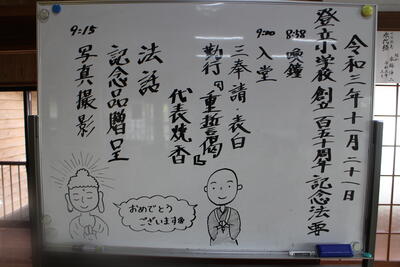 令和三年十一月二十一日
登立小学校 創立百五十周年記念法要
8:58 喚鐘
9:00 入堂
三奉請 表白
勤行『重誓偈』
代表焼香
法話
記念品贈呈
9:15 写真撮影
おめでとう
ございます